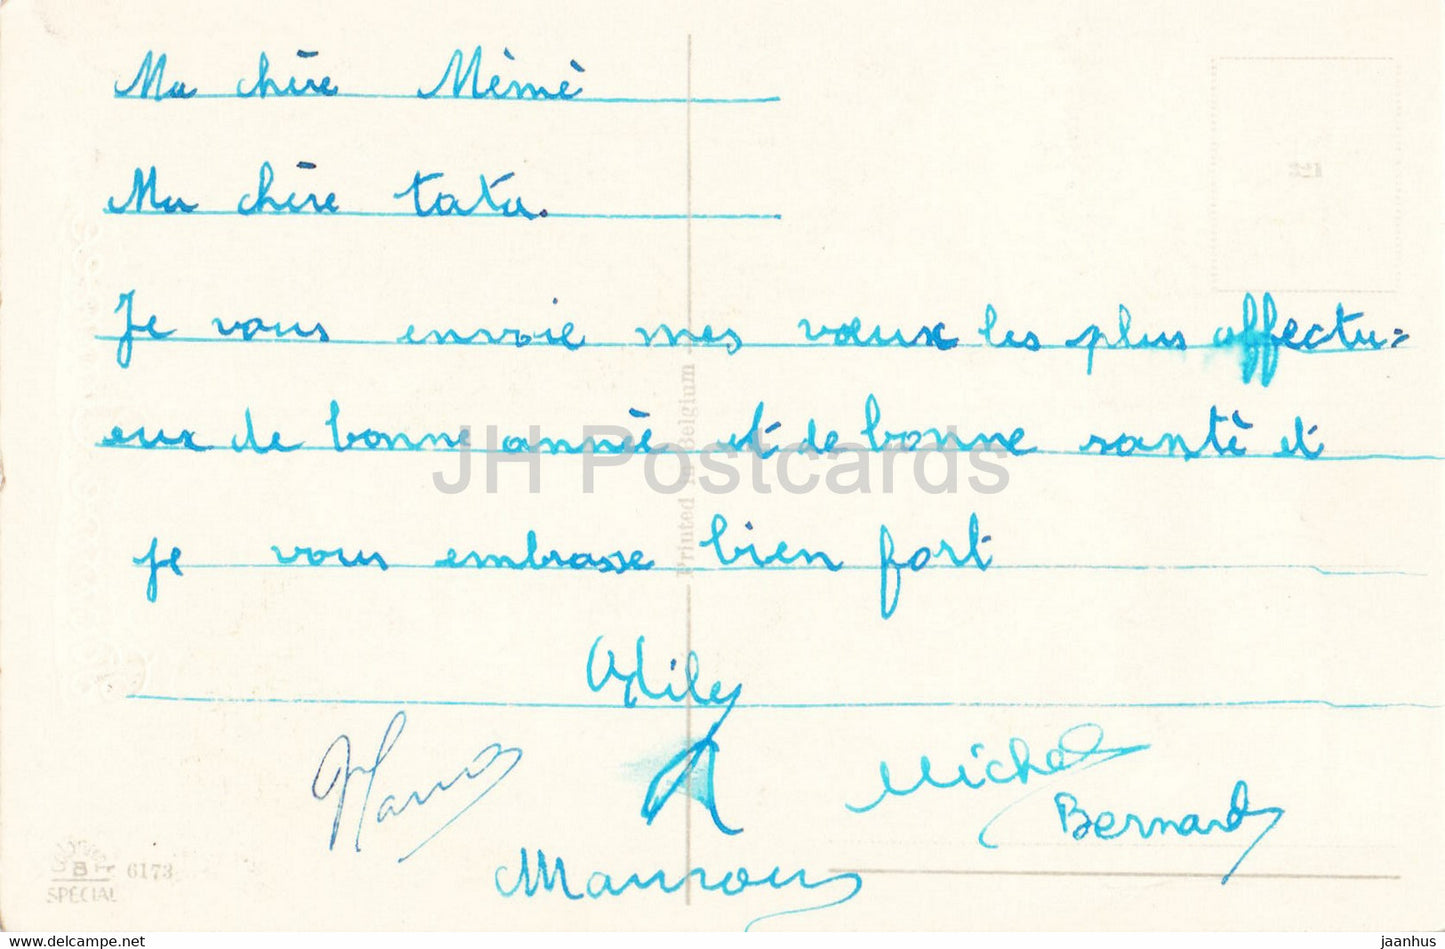 Ma chère Mèmè
Ma chère tata.
Je vous envoie mes vœux les plus affectu=
eux de bonne année et de bonne santè et
je vous embrasse bien fort
Odile
Michel
Bernard
JH Postcards
Printed in Belgium
6173
SPECIAL
hippostcard.net
jaanhus